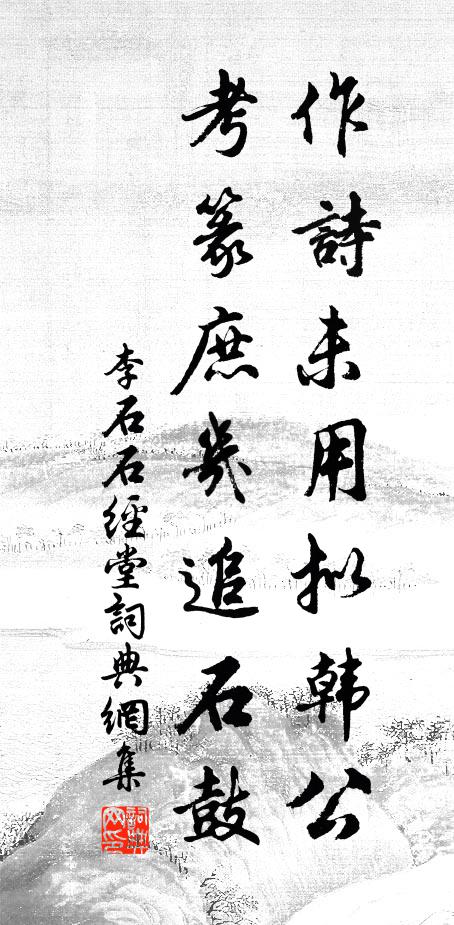 作詩未用拟韩公
考篆庶幾追石鼓
李石石經堂詞典網集